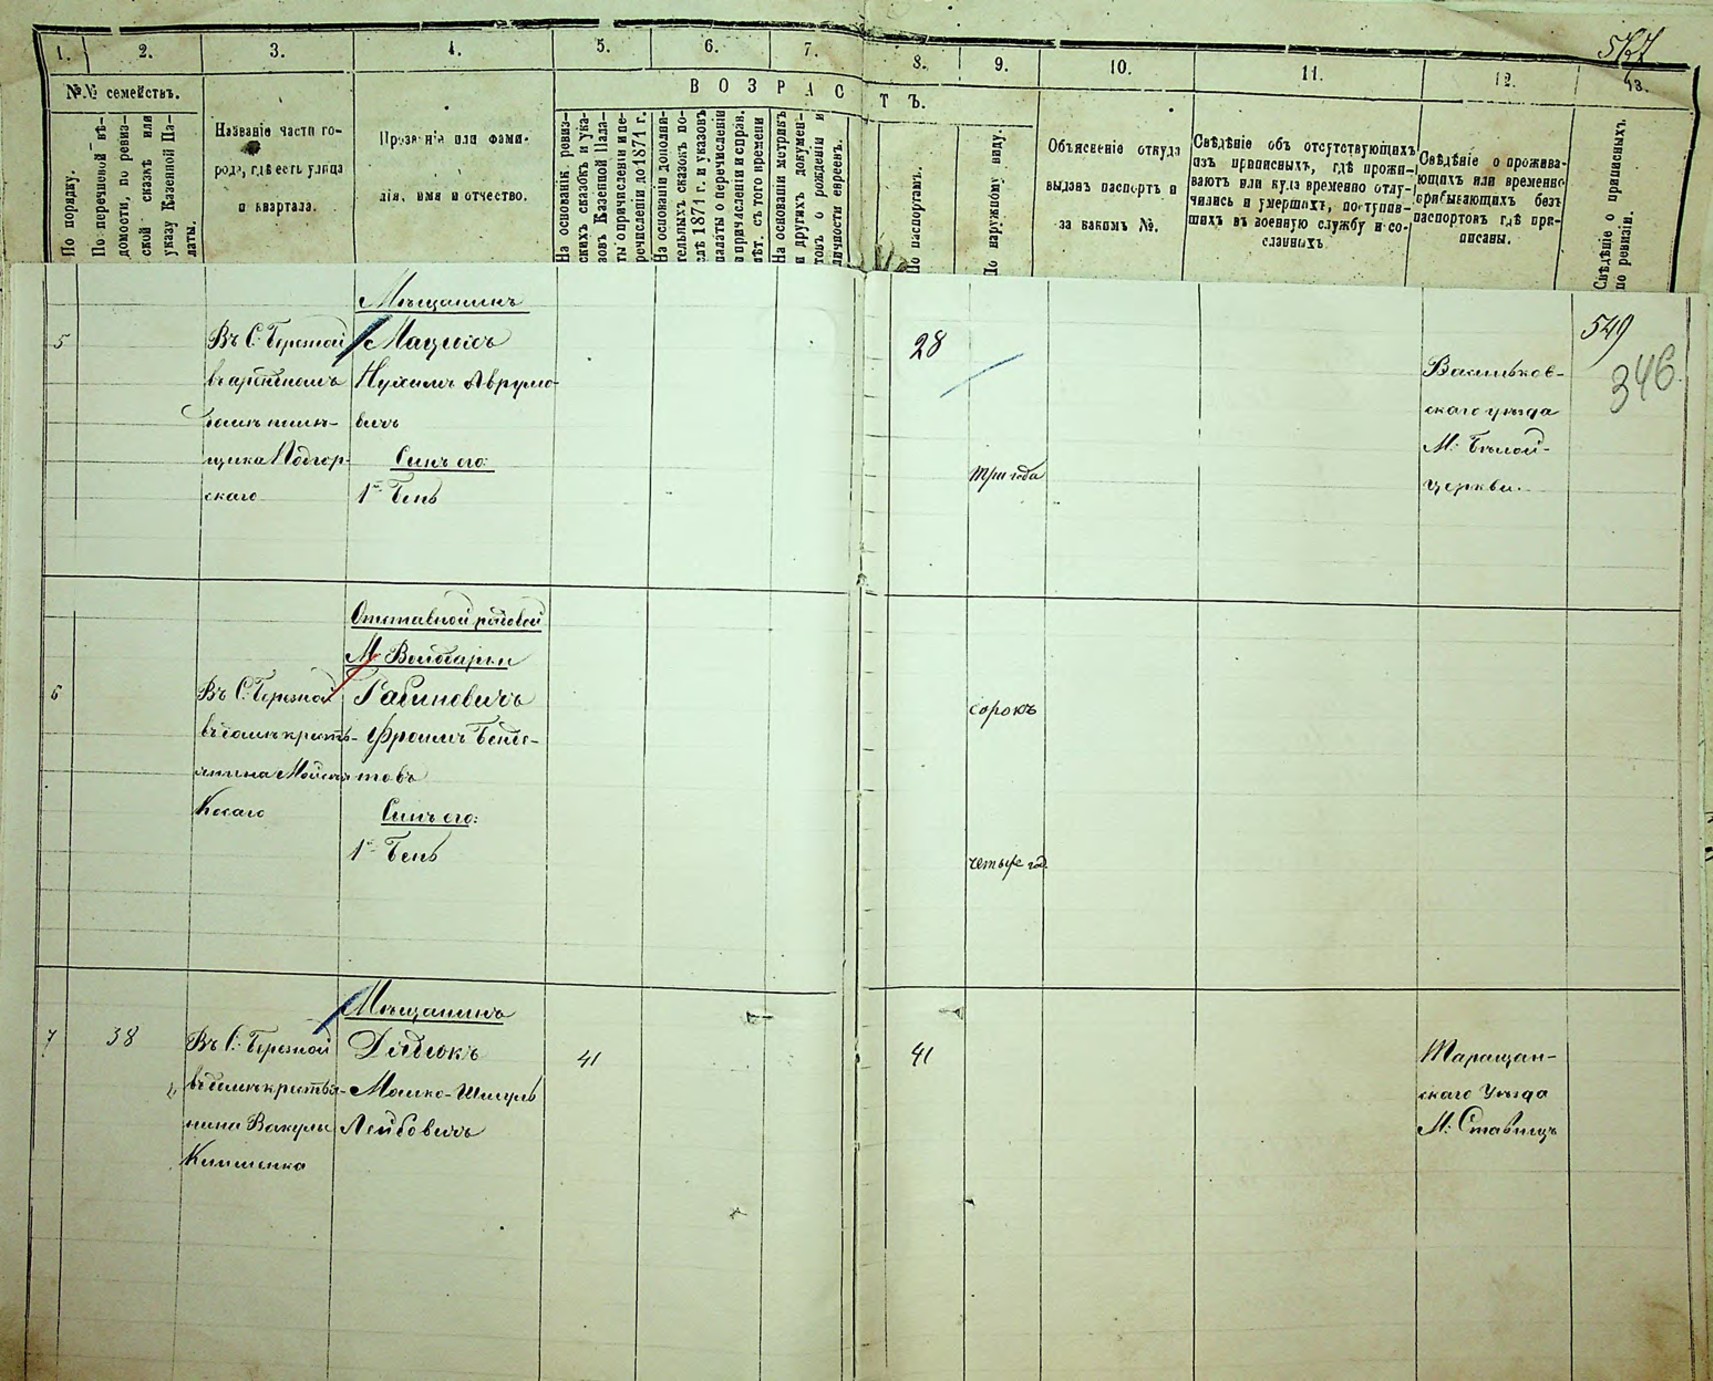 547
1. 2. 3. 4. 5. 6. 7. 8. 9. 10. 11. 12. 13.
№№ семействъ.
ВОЗРАСТЪ.
По порядку.
По перечневой вѣ-
домости, по ревиз-
ской сказкѣ или
указу Казенной Па-
латы.
Названіе части го-
рода, гдѣ есть улица
и квартала.
Прозваніе или фами-
лія, имя и отчество.
На основаніи ревиз-
скихъ сказокъ и ука-
зовъ Казенной Пала-
ты о причисленіи и пе-
речисленіи до 1871 г.
На основаніи дополни-
тельныхъ сказокъ по-
слѣ 1871 г. и указовъ
палаты о перечисленіи
и причисленіи и справ.
лѣт. съ того времени
На основаніи метрикъ
и другихъ докумен-
товъ о рожденіи и
личности евреевъ.
По паспортамъ.
По наружному виду.
Объясненіе откуда
выданъ паспортъ и
за какимъ №.
Свѣдѣніе объ отсутствующихъ
изъ приписныхъ, гдѣ прожи-
ваютъ или куда временно отлу-
чились и умершихъ, поступив-
шихъ въ военную службу и со-
сланныхъ
Свѣдѣніе о прожива-
ющихъ или временно
прибывающихъ безъ
паспортовъ гдѣ при-
писаны.
Свѣдѣніе о приписныхъ
по ревизіи.
549
346
Мѣщанинъ
5
Въ С. Березной
домѣ помѣ-
щика Подгор-
скаго
Нухимъ Аврумо-
вичъ
Сынъ его:
1й Бень
28
три года
Васильков-
скаго уѣзда
М: Бѣлой-
церкви.
Отставной рядовой
М. Володарки
6
Въ С. Березной
въ домѣ кресть-
янина Моисея
Косаго
Рабиновичъ
Фроимъ Бенье-
товъ
Сынъ его:
1й Бень
сорокъ
четыре год.
Мѣщанинъ
7
38
Въ С. Березной
въ домѣ крестья-
нина Вакулы
Клименка
Дядюкъ
Мошко-Шмуль
Лейбовичъ
41
41
Таращан-
скаго Уѣзда
М: Ставищъ